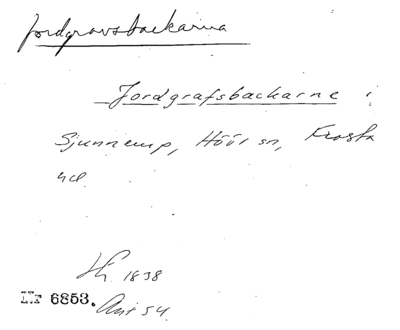 Jordgravsbackarna
Jordgrafsbackarne i
Sjunnerup, Höör sn, Frosta
hd
1838
LUF 6853. Ant 54